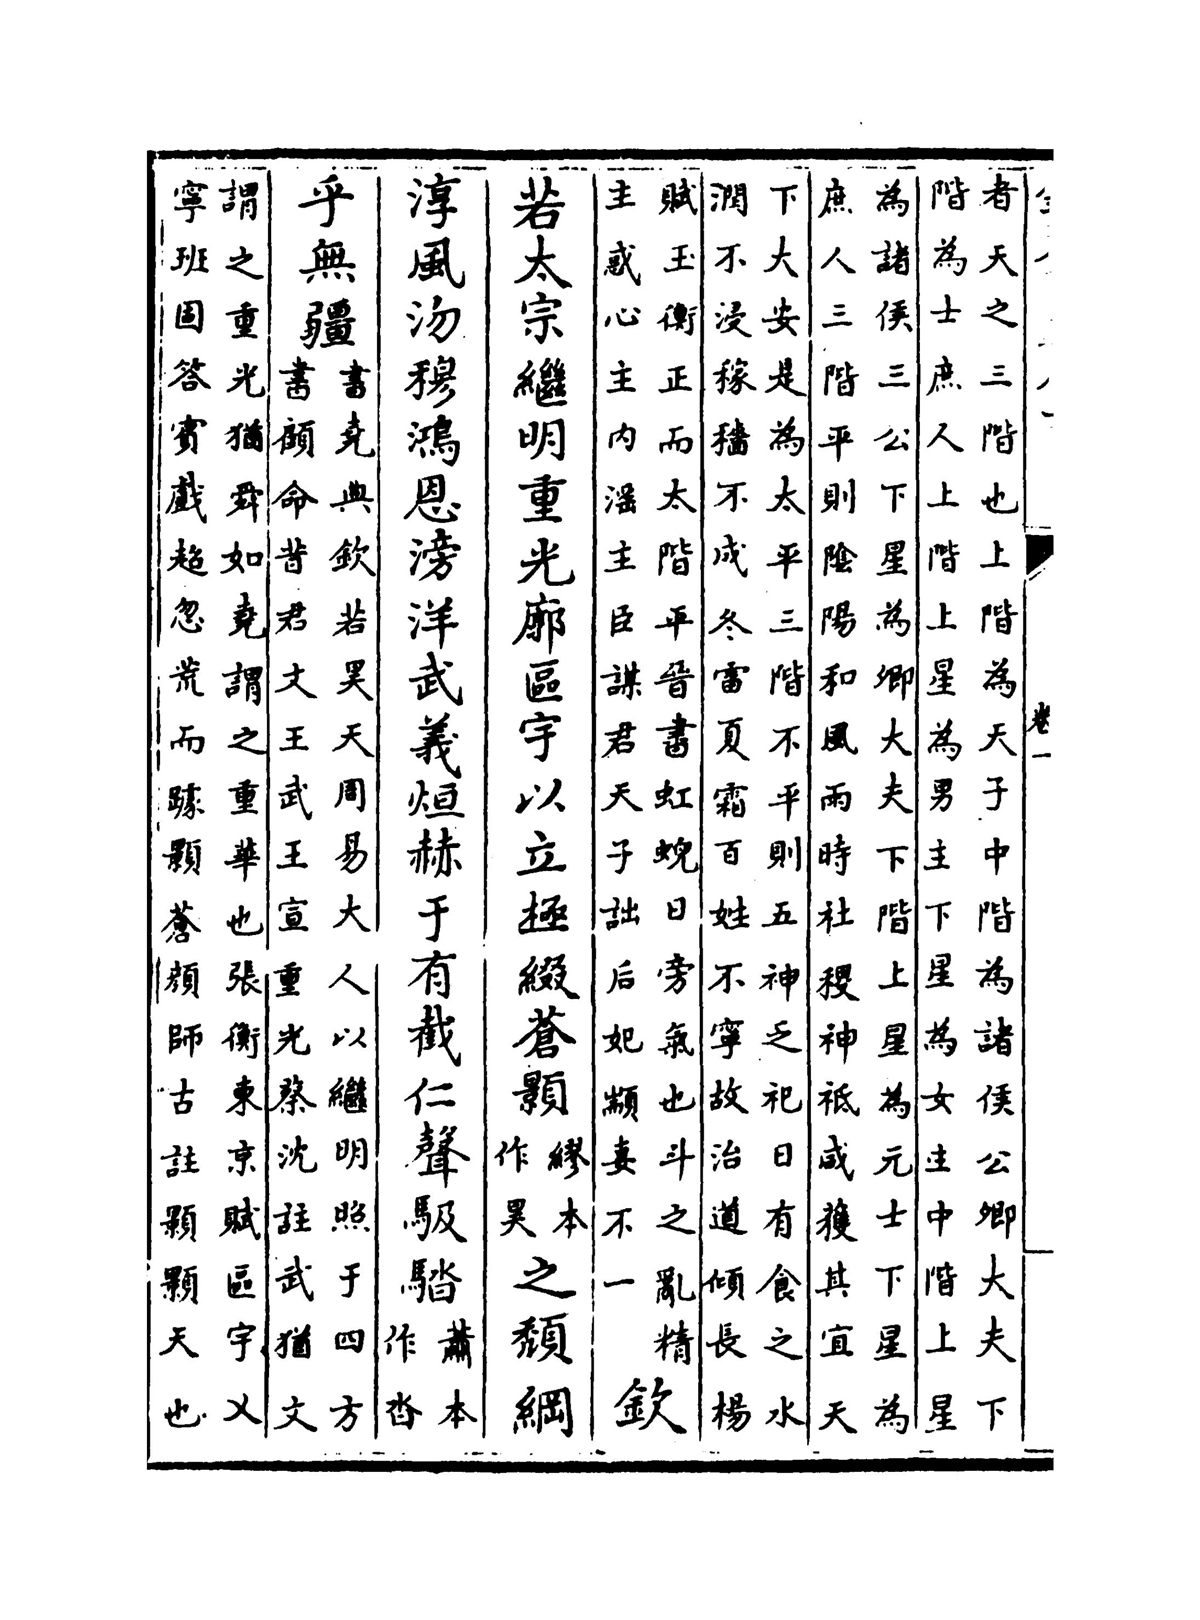 者天之三階也上階為天子中階為諸侯公卿大夫下
階為士庶人上階上星為男主下星為女主中階上星
為諸侯三公下星為卿大夫下階上星為元士下星為
庶人三階平則陰陽和風雨時社稷神祇咸獲其宜天
下大安是為太平三階不平則五神乏祀日有食之水
潤不浸稼穡不成冬雷夏霜百姓不寧故治道傾長楊
賦玉衡正而太階平晉書虹蜺日旁氣也斗之亂精
主惑心主内滛主臣謀君天子詘后妃顓妻不一
欽
若太宗繼明重光廓區宇以立極綴蒼顥繆本作昊之頽綱
淳風沕穆鴻恩滂洋武義烜赫于有截仁聲馺蕭本作沓
乎無疆書堯典欽若昊天周易大人以繼明照于四方
書顧命昔君文王武王宣重光蔡沈註武猶文
謂之重光猶舜如堯謂之重華也張衡東京賦區宇乂
寧班固答賓戲超忽荒而躆顥蒼顔師古註顥顥天也
卷一